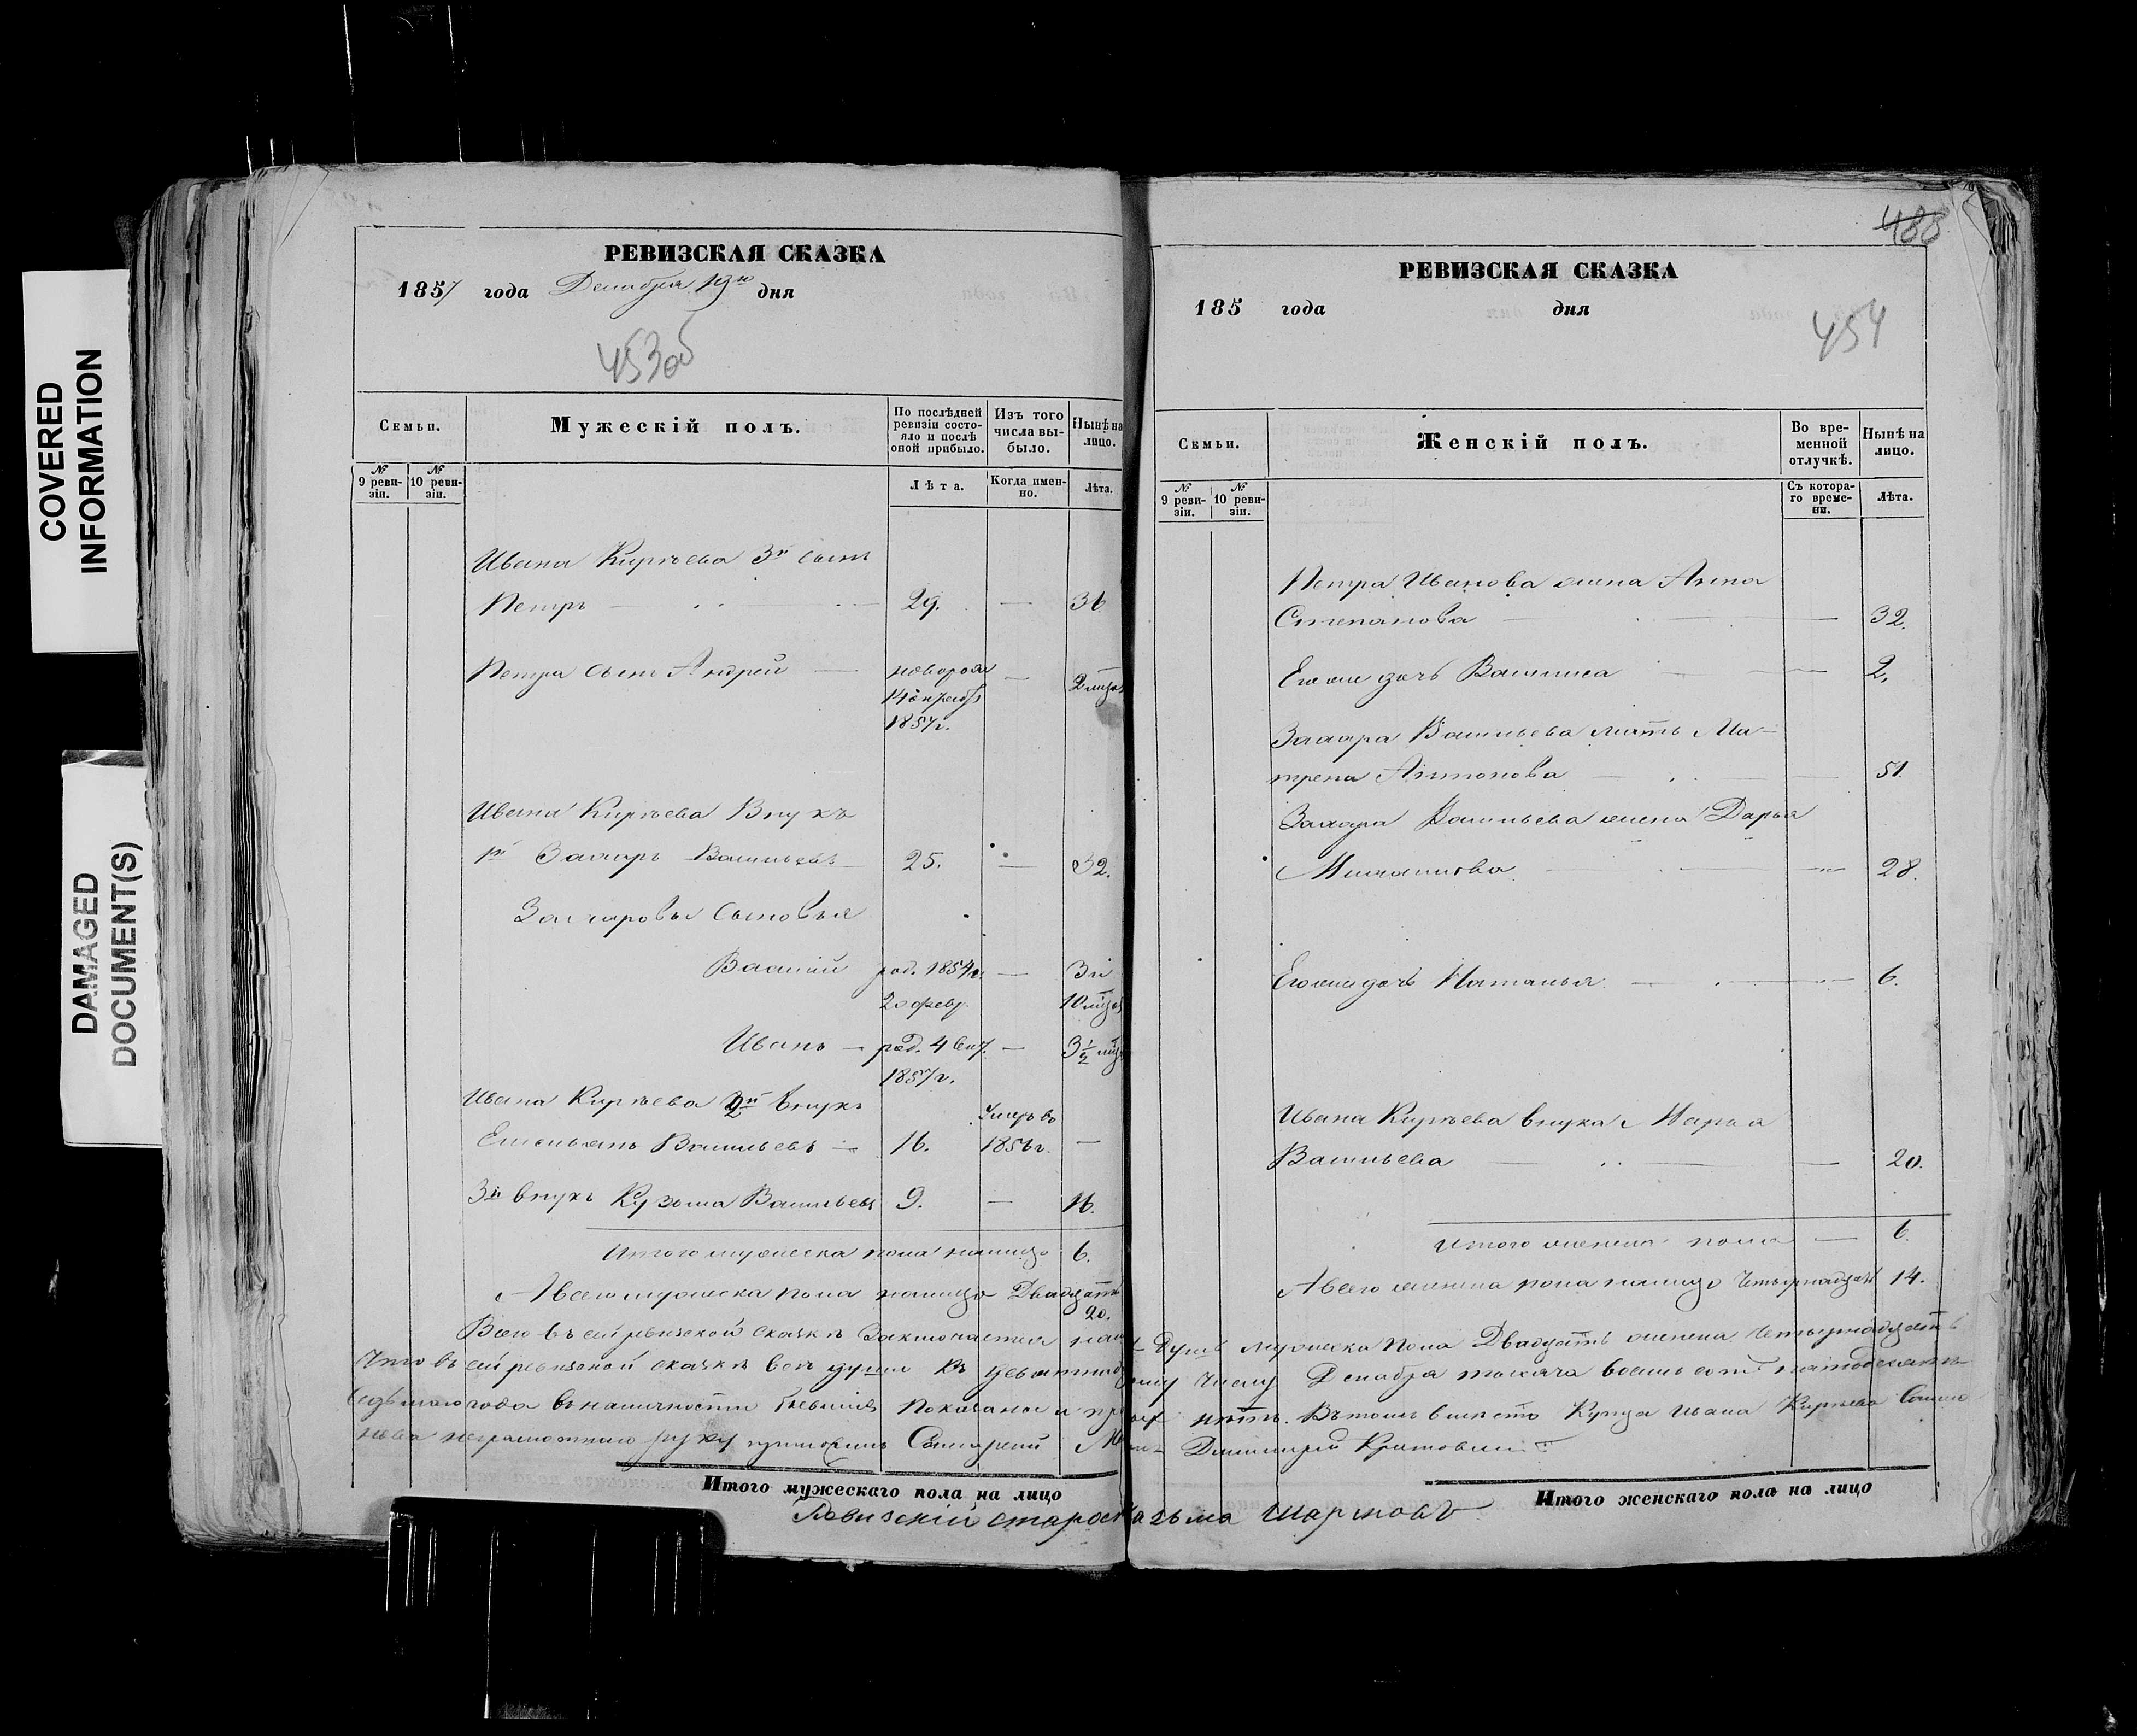 COVERED
INFORMATION
DAMAGED
DOCUMENT(S)
РЕВИЗСКАЯ СКАЗКА
1857 года Декабря 19го дня
453об
Семьи.
Мужескій полъ.
По послѣдней ревизіи состо-
яло и послѣ
оной прибыло.
Изъ того
числа вы-
было.
Нынѣ на
лицо.
№
9 реви-
зіи.
№
10 реви-
зіи.
Лѣта.
Когда имен-
но.
Лѣта.
Ивана Киріьева 3й сынъ
Петръ 29. — 36
Петра сынъ Андрей — новорож
14 октяб
1857г.
— 2 мѣся
Ивана Киріьева Внукъ
1й Захаръ Васильевъ 25. — 32.
Захаровы Сыновья
Василій род. 1854г. — 3 и
20 февр. 10 мѣся
Иванъ — род. 4 Сен. — 3½ мѣ
1857г.
Ивана Киріьева 2й внукъ Умеръ въ
Емельянъ Васильевъ — 16. 1856г. —
3й внукъ Кузьма Васильевъ 9. — 16.
Итого мужеска пола налицо 6.
А всего мужеска пола налицо Двадцать
20.
Итого мужескаго пола на лицо
488
РЕВИЗСКАЯ СКАЗКА
185 года дня
454
Семьи.
Женскій полъ.
Во вре-
менной
отлучкѣ.
Нынѣ на
лицо.
№
9 реви-
зіи.
№
10 реви-
зіи.
Съ котора-
го време-
ни.
Лѣта.
Петра Иванова жена Анна
Степанова — 32.
Его же дочь Василиса — 2.
Захара Васильева мать Ма-
трена Антонова — 51.
Захара Васильева жена Дарья
— 28.
Его же дочь Наталья — 6.
Ивана Киріьева внука Марья
Васильева — 20.
Итого женска пола — 6.
А всего женска пола налицо Четырнадцать 14.
Всего въ сей ревизской сказкѣ Заключается на Душъ мужеска пола Двадцать женска Четырнадцать
Что въ сей ревизской сказкѣ всѣ души къ девятнад числу Декабря тысяча восемь сотъ пятьдесятъ
седьмаго года въ наличности бывшія Показаны и нѣтъ. Въ томъ вмѣсто Купца Ивана Киріьева
неграмотнаго руку приложилъ Дмитрій
Итого женскаго пола на лицо
Ревизскій староста Шарповъ